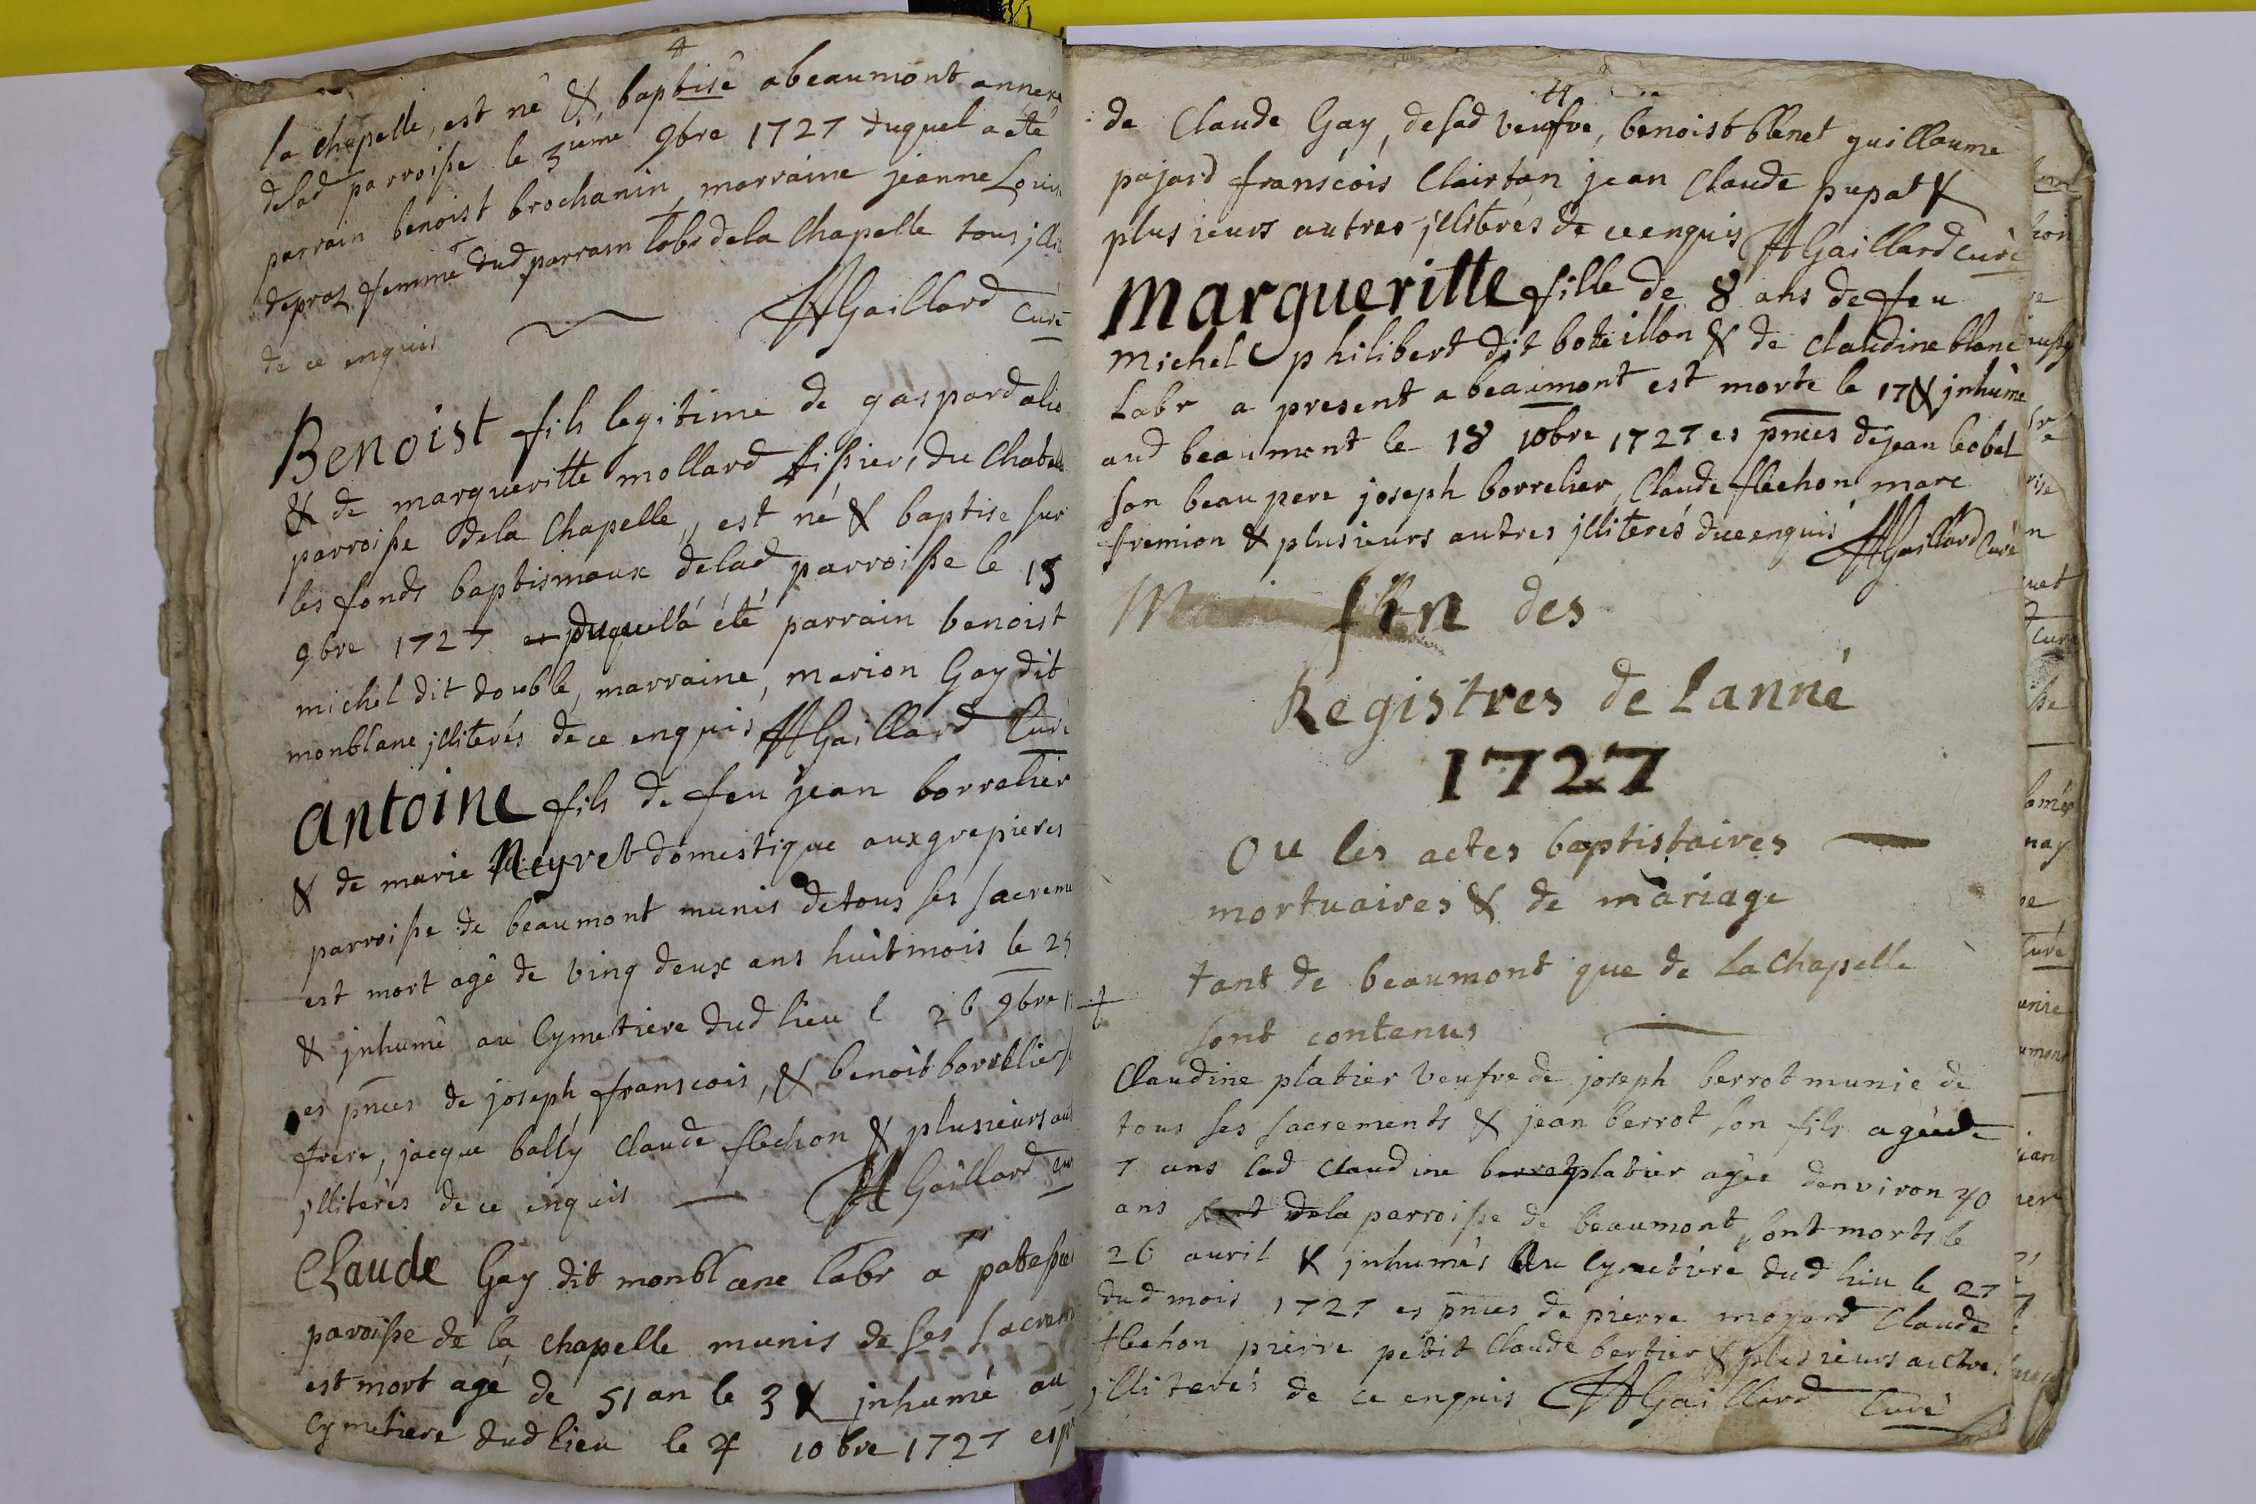 la chapelle, est né & baptisé a beaumont annexe
delad parroisse le 3ieme 9bre 1727 duquel a été
parrain benoist brochanin, marraine jeanne Louis
depraz femme dud parrain labr de la Chapelle tous illi
de ce enquis AGaillard Curé
Benoist fils legitime de gaspard alis
& de margueritte mollard tissier, du Chatelu
parroisse de la Chapelle, est né & baptise sur
les fonds baptismaux delad parroisse le 15
9bre 1727 duquel a été parrain benoist
michel dit double, marraine, marion Gay dit
monblanc illiterés de ce enquis AGaillard Curé
Antoine fils de feu jean borrelier
& de marie Neyret domestique aux grepieres
parroisse de beaumont munis de tous ses sacreme
est mort agé de ving deux ans huit mois le 25
& inhumé au Cymetiere dud lieu l 26 9bre 17
es pnces de joseph franscois, & benoit borrelier
frere, jacque bally Claude flechon & plusieurs aut
illiterés de ce enquis AGaillard cur
Claude Gay dit monblanc labr a
paroisse de la chapelle munis de ses sacrem
est mort agé de 51 an le 3 & inhumé au
Cymetiere dud lieu le 4 10bre 1727 es p
de Claude Gay, de sad veufve, benoist blenet guillaume
pajard franscois Clairtan jean Claude pupat &
plusieurs autres illiterés de ce enquis AGaillard curé
Margueritte fille de 8 ans de feu
Michel philibert dit boteillon & de Claudine blanc
Labr a present a beaumont est morte le 17 & inhumé
aud beaumont le 18 10bre 1727 es pnces de jean leobel
son beau pere joseph borrelier, Claude flechon marc
fremion & plusieurs autres illiterés du ce enquis AGaillard Curé
fin des
Registres de Lanné
1727
Ou les actes baptistaires
mortuaires & de mariage
tant de beaumont que de La Chapelle
sont contenus
Claudine platier veufve de joseph berrot munie de
tous ses sacrements & jean berrot son fils agé de
7 ans lad Claudine platier agée denviron 40
ans de la parroisse de beaumont, sont morts le
26 avril & inhumés au Cymetiere dud lieu le 27
dud mois 1727 es pnces de pierre moyard Claude
flechon pierre petit Claude bertier & plusieurs autres
illiterés de ce enquis AGaillard Curé